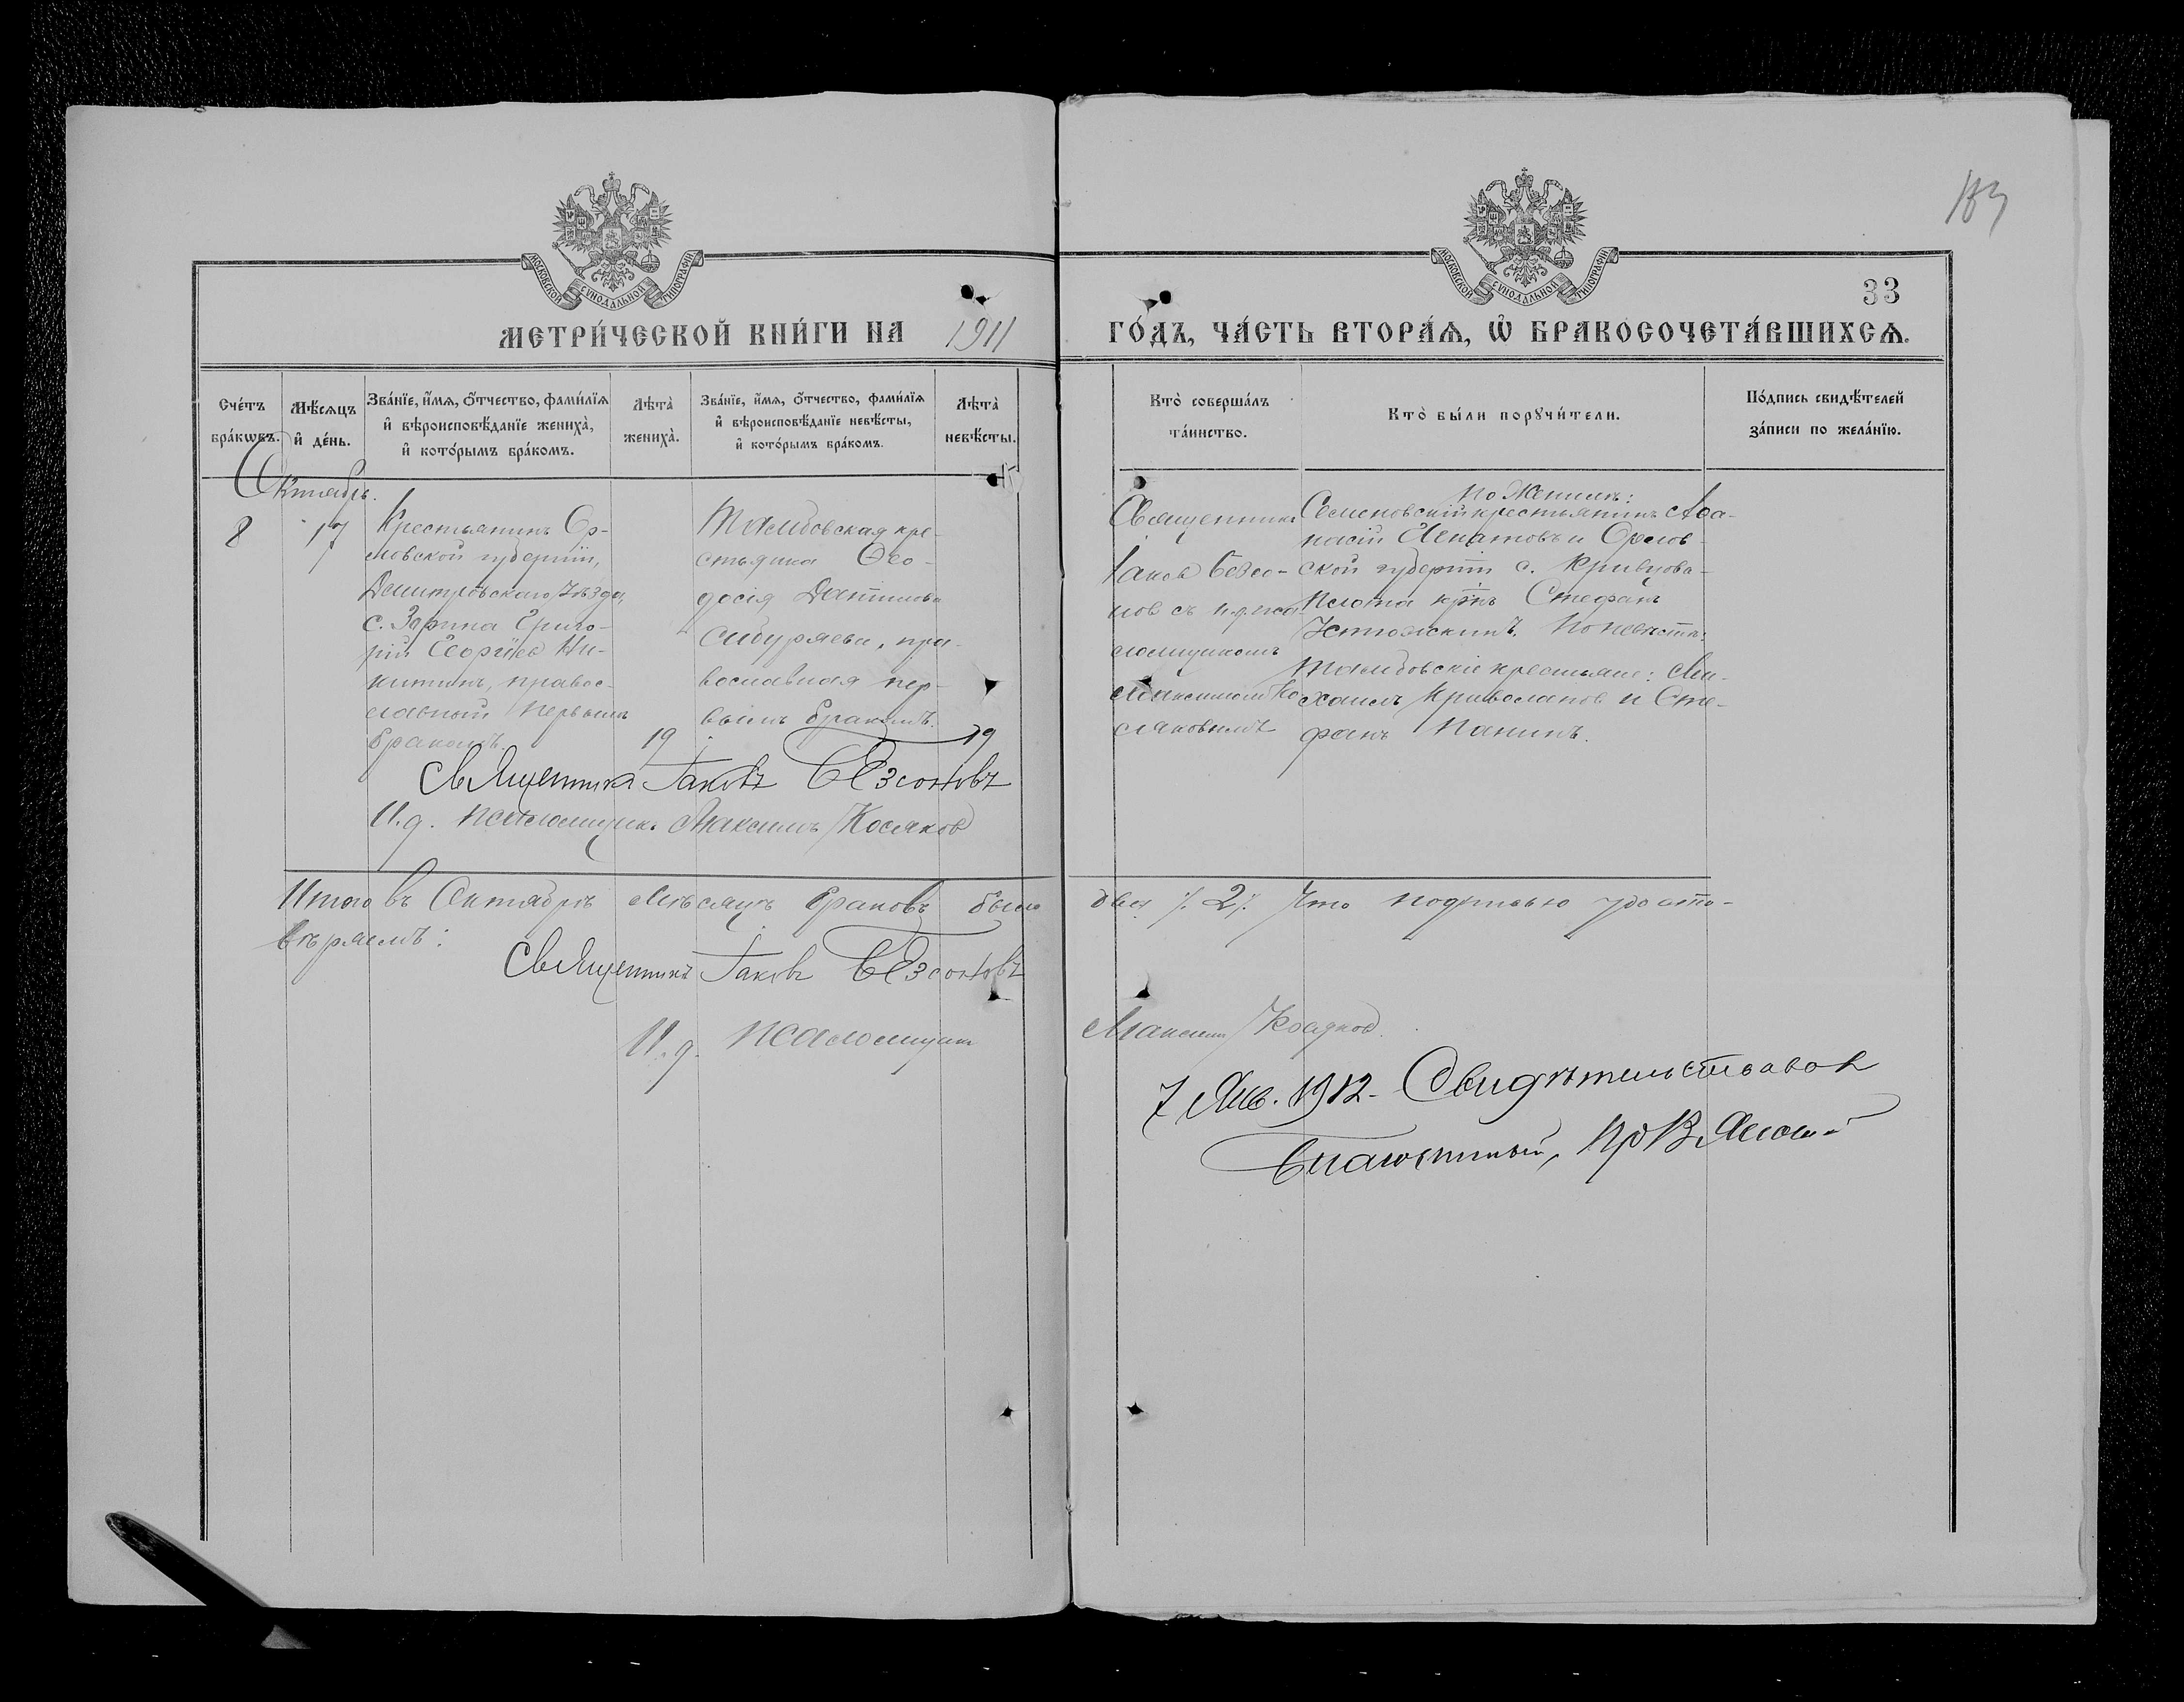 183
33
МОСКОВСКОЙ СѴНОДАЛЬНОЙ ТИПОГРАФІИ
МОСКОВСКОЙ СѴНОДАЛЬНОЙ ТИПОГРАФІИ
МЕТРИ́ЧЕСКОЙ КНИ́ГИ НА 1911 ГО́ДЪ, ЧА́СТЬ ВТОРА́Ѧ, Ѽ БРАКОСОЧЕТА́ВШИХСѦ.
Сче́тъ
бра́кѡвъ.
Мѣ́сѧцъ
и҆ де́нь.
Зва́нїе, и҆́мѧ, ѻ҆́тчество, фами́лїѧ
и҆ вѣроисповѣ́данїе жениха̀,
и҆ кото́рымъ бра́комъ.
Лѣта̀
жениха̀.
Зва́нїе, и҆́мѧ, ѻ҆́тчество, фами́лїѧ
и҆ вѣроисповѣ́данїе невѣ́сты,
и҆ кото́рымъ бра́комъ.
Лѣта̀
невѣ́сты.
Кто̀ соверша́лъ
та́инство.
Кто̀ бы́ли порꙋчи́тели.
По́дпись свидѣ́телей
за́писи по жела́нїю.
Октябрь.
8
17
Крестьянинъ Ор-
ловской губерніи,
Дмитровскаго уѣзда,
с. Зорина Григо-
рій Георгіев Ни-
китинъ, правос-
лавный первымъ
бракомъ.
19
Тамбовская кре-
стьянка Ѳео-
досія Даніилова
Сибиряева, пра-
вославная пер-
вымъ бракомъ.
19
Священникъ
Іаков Безсо-
нов съ и.д. пса-
ломщикомъ
Максимомъ Ко
сяковымъ
По женихѣ:
Семеновскій крестьянинъ Аѳа-
насій Игнатовъ и Орлов-
ской губерніи с. Кривцова-
Плота крнъ Стефанъ
Устюжкинъ. По невѣстѣ:
Тамбовскіе крестьяне: Ми-
хаилъ Криволапов и Сте-
фанъ Панинъ.
Священникъ Іаковъ Безсоновъ
И.д. псаломщика Максимъ Косяков
Итого въ Октябрѣ мѣсяцѣ браковъ было два /.2/. Что подписью удосто-
вѣряемъ:
Священникъ Іаковъ Безсоновъ
И.д. псаломщика Максимъ Косяков.
7 Янв. 1912 - Свидѣтельствовал
Благочинный,